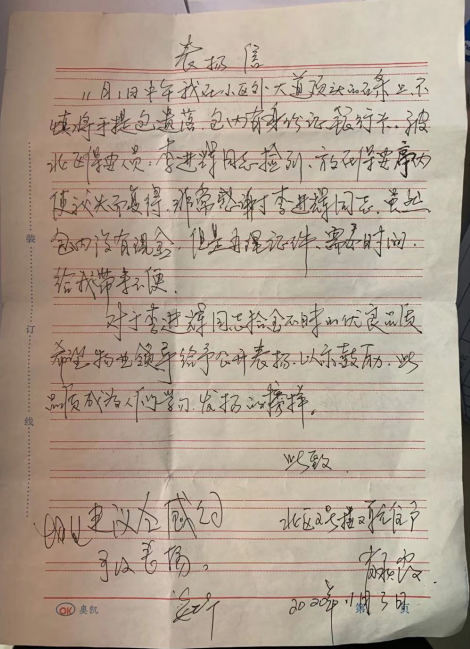 表扬信
11月1日中午我在小区外大道顶头的石条上不
慎将手提包遗落,包内有身份证、银行卡、被
北区保安人员:李进辉同志捡到、放到保安亭内
使该失而复得,非常感谢李进辉同志,虽然
包内没有现金,但是办理证件、需要时间,
给我带来不便。
对于李进辉同志拾金不昧的优良品质
希望物业领导给予公开表扬,以示鼓励,此
品质成为人们学习、发扬的榜样。
此致
装
订
线
建议在
公司
予以表扬。
北区
2020年11月3日
OK 奥凯
第 页